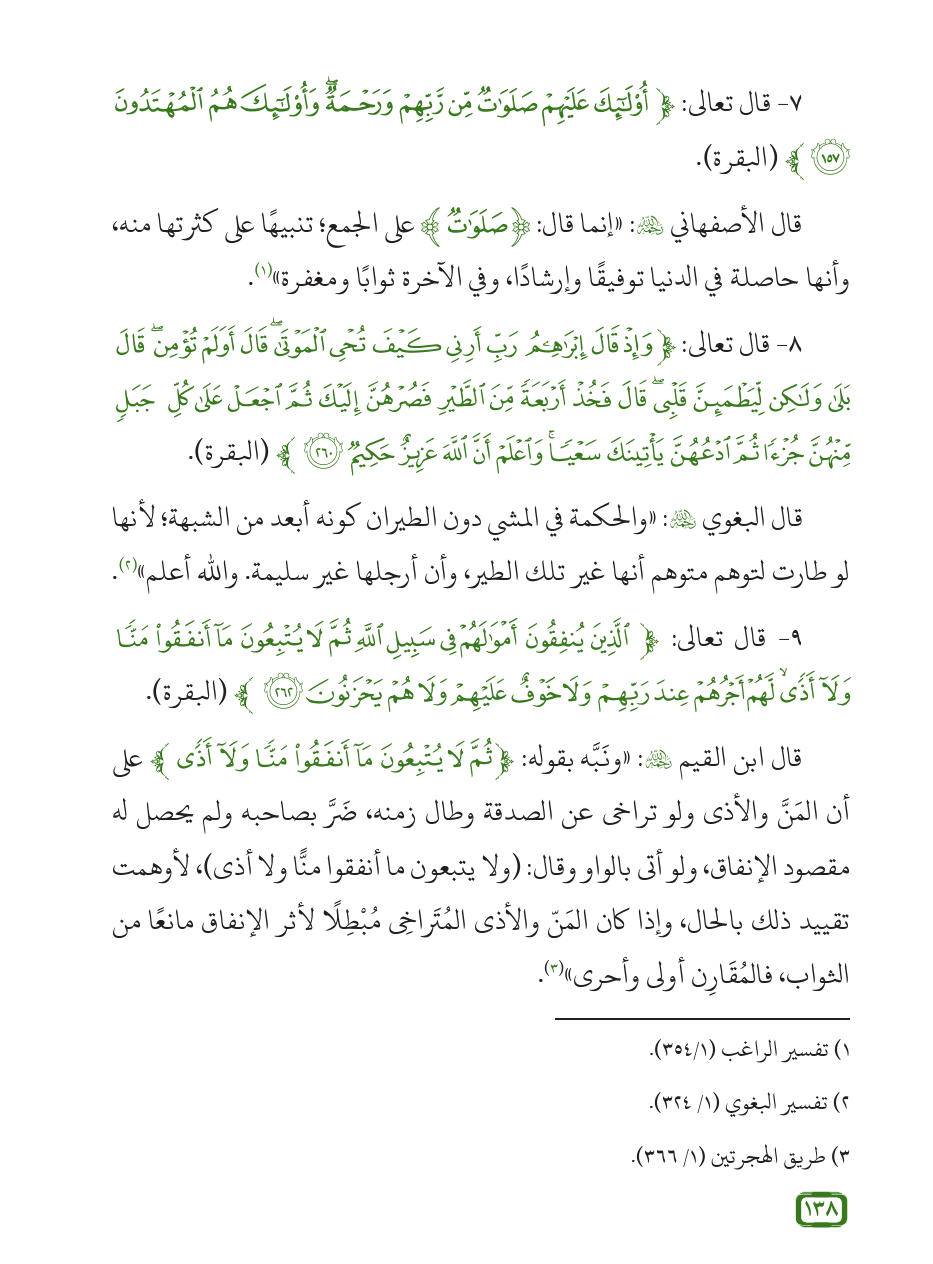 ٧- قال تعالى: ﴿ أُوْلَٰٓئِكَ عَلَيْهِمْ صَلَوَٰتٌ مِّن رَّبِّهِمْ وَرَحْمَةٌۖ وَأُوْلَٰٓئِكَ هُمُ ٱلْمُهْتَدُونَ
١٥٧ ﴾ (البقرة).
قال الأصفهاني رحمه الله: «إنما قال: ﴿صَلَوَٰتٌ﴾ على الجمع؛ تنبيهًا على كثرتها منه،
وأنها حاصلة في الدنيا توفيقًا وإرشادًا، وفي الآخرة ثوابًا ومغفرة»(١).
٨- قال تعالى: ﴿ وَإِذْ قَالَ إِبْرَٰهِـۧمُ رَبِّ أَرِنِي كَيْفَ تُحْىِ ٱلْمَوْتَىٰۖ قَالَ أَوَلَمْ تُؤْمِنۖ قَالَ
بَلَىٰ وَلَٰكِن لِّيَطْمَئِنَّ قَلْبِىۖ قَالَ فَخُذْ أَرْبَعَةً مِّنَ ٱلطَّيْرِ فَصُرْهُنَّ إِلَيْكَ ثُمَّ ٱجْعَلْ عَلَىٰ كُلِّ جَبَلٍ
مِّنْهُنَّ جُزْءًا ثُمَّ ٱدْعُهُنَّ يَأْتِينَكَ سَعْيًاۚ وَٱعْلَمْ أَنَّ ٱللَّهَ عَزِيزٌ حَكِيمٌ ٢٦٠ ﴾ (البقرة).
قال البغوي رحمه الله: «والحكمة في المشي دون الطيران كونه أبعد من الشبهة؛ لأنها
لو طارت لتوهم متوهم أنها غير تلك الطير، وأن أرجلها غير سليمة. والله أعلم»(٢).
٩- قال تعالى: ﴿ ٱلَّذِينَ يُنفِقُونَ أَمْوَٰلَهُمْ فِى سَبِيلِ ٱللَّهِ ثُمَّ لَا يُتْبِعُونَ مَآ أَنفَقُوا۟ مَنًّا
وَلَآ أَذًىۙ لَّهُمْ أَجْرُهُمْ عِندَ رَبِّهِمْ وَلَا خَوْفٌ عَلَيْهِمْ وَلَا هُمْ يَحْزَنُونَ ٢٦٢ ﴾ (البقرة).
قال ابن القيم رحمه الله: «ونَبَّه بقوله: ﴿ثُمَّ لَا يُتْبِعُونَ مَآ أَنفَقُوا۟ مَنًّا وَلَآ أَذًى ﴾ على
أن المَنَّ والأذى ولو تراخى عن الصدقة وطال زمنه، ضَرَّ بصاحبه ولم يحصل له
مقصود الإنفاق، ولو أتى بالواو وقال: (ولا يتبعون ما أنفقوا منًّا ولا أذى)، لأوهمت
تقييد ذلك بالحال، وإذا كان المَنّ والأذى المُتَراخِى مُبْطِلًا لأثر الإنفاق مانعًا من
الثواب، فالمُقَارِن أولى وأحرى»(٣).
١) تفسير الراغب (٣٥٤/١).
٢) تفسير البغوي (١/ ٣٢٤).
٣) طريق الهجرتين (١/ ٣٦٦).
١٣٨